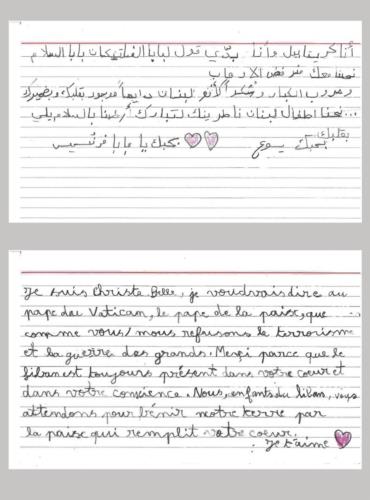 أنا كريستابيل وأنا بدّي قول لبابا الفاتيكان بابا السلام
نحنا معك منرفض الارهاب
وحروب الكبار وشكراً لأنو لبنان دايماً موجود بقلبك وبضميرك
... نحنا اطفال لبنان ناطرينك لتبارك أرضنا بالسلام يلي
بقلبك.
بحبك يسوع بحبك يا بابا فرنسيس
Je suis Christa Belle, je voudrais dire au
pape du Vatican, le pape de la paix, que
comme vous / nous refusons le terrorisme
et la guerre des grands. Merçi parce que le
liban est toujours présent dans votre coeur et
dans votre conscience. Nous, enfants du liban, vous
attendons pour bénir notre terre par
la paix qui remplit votre coeur.
Je t'aime